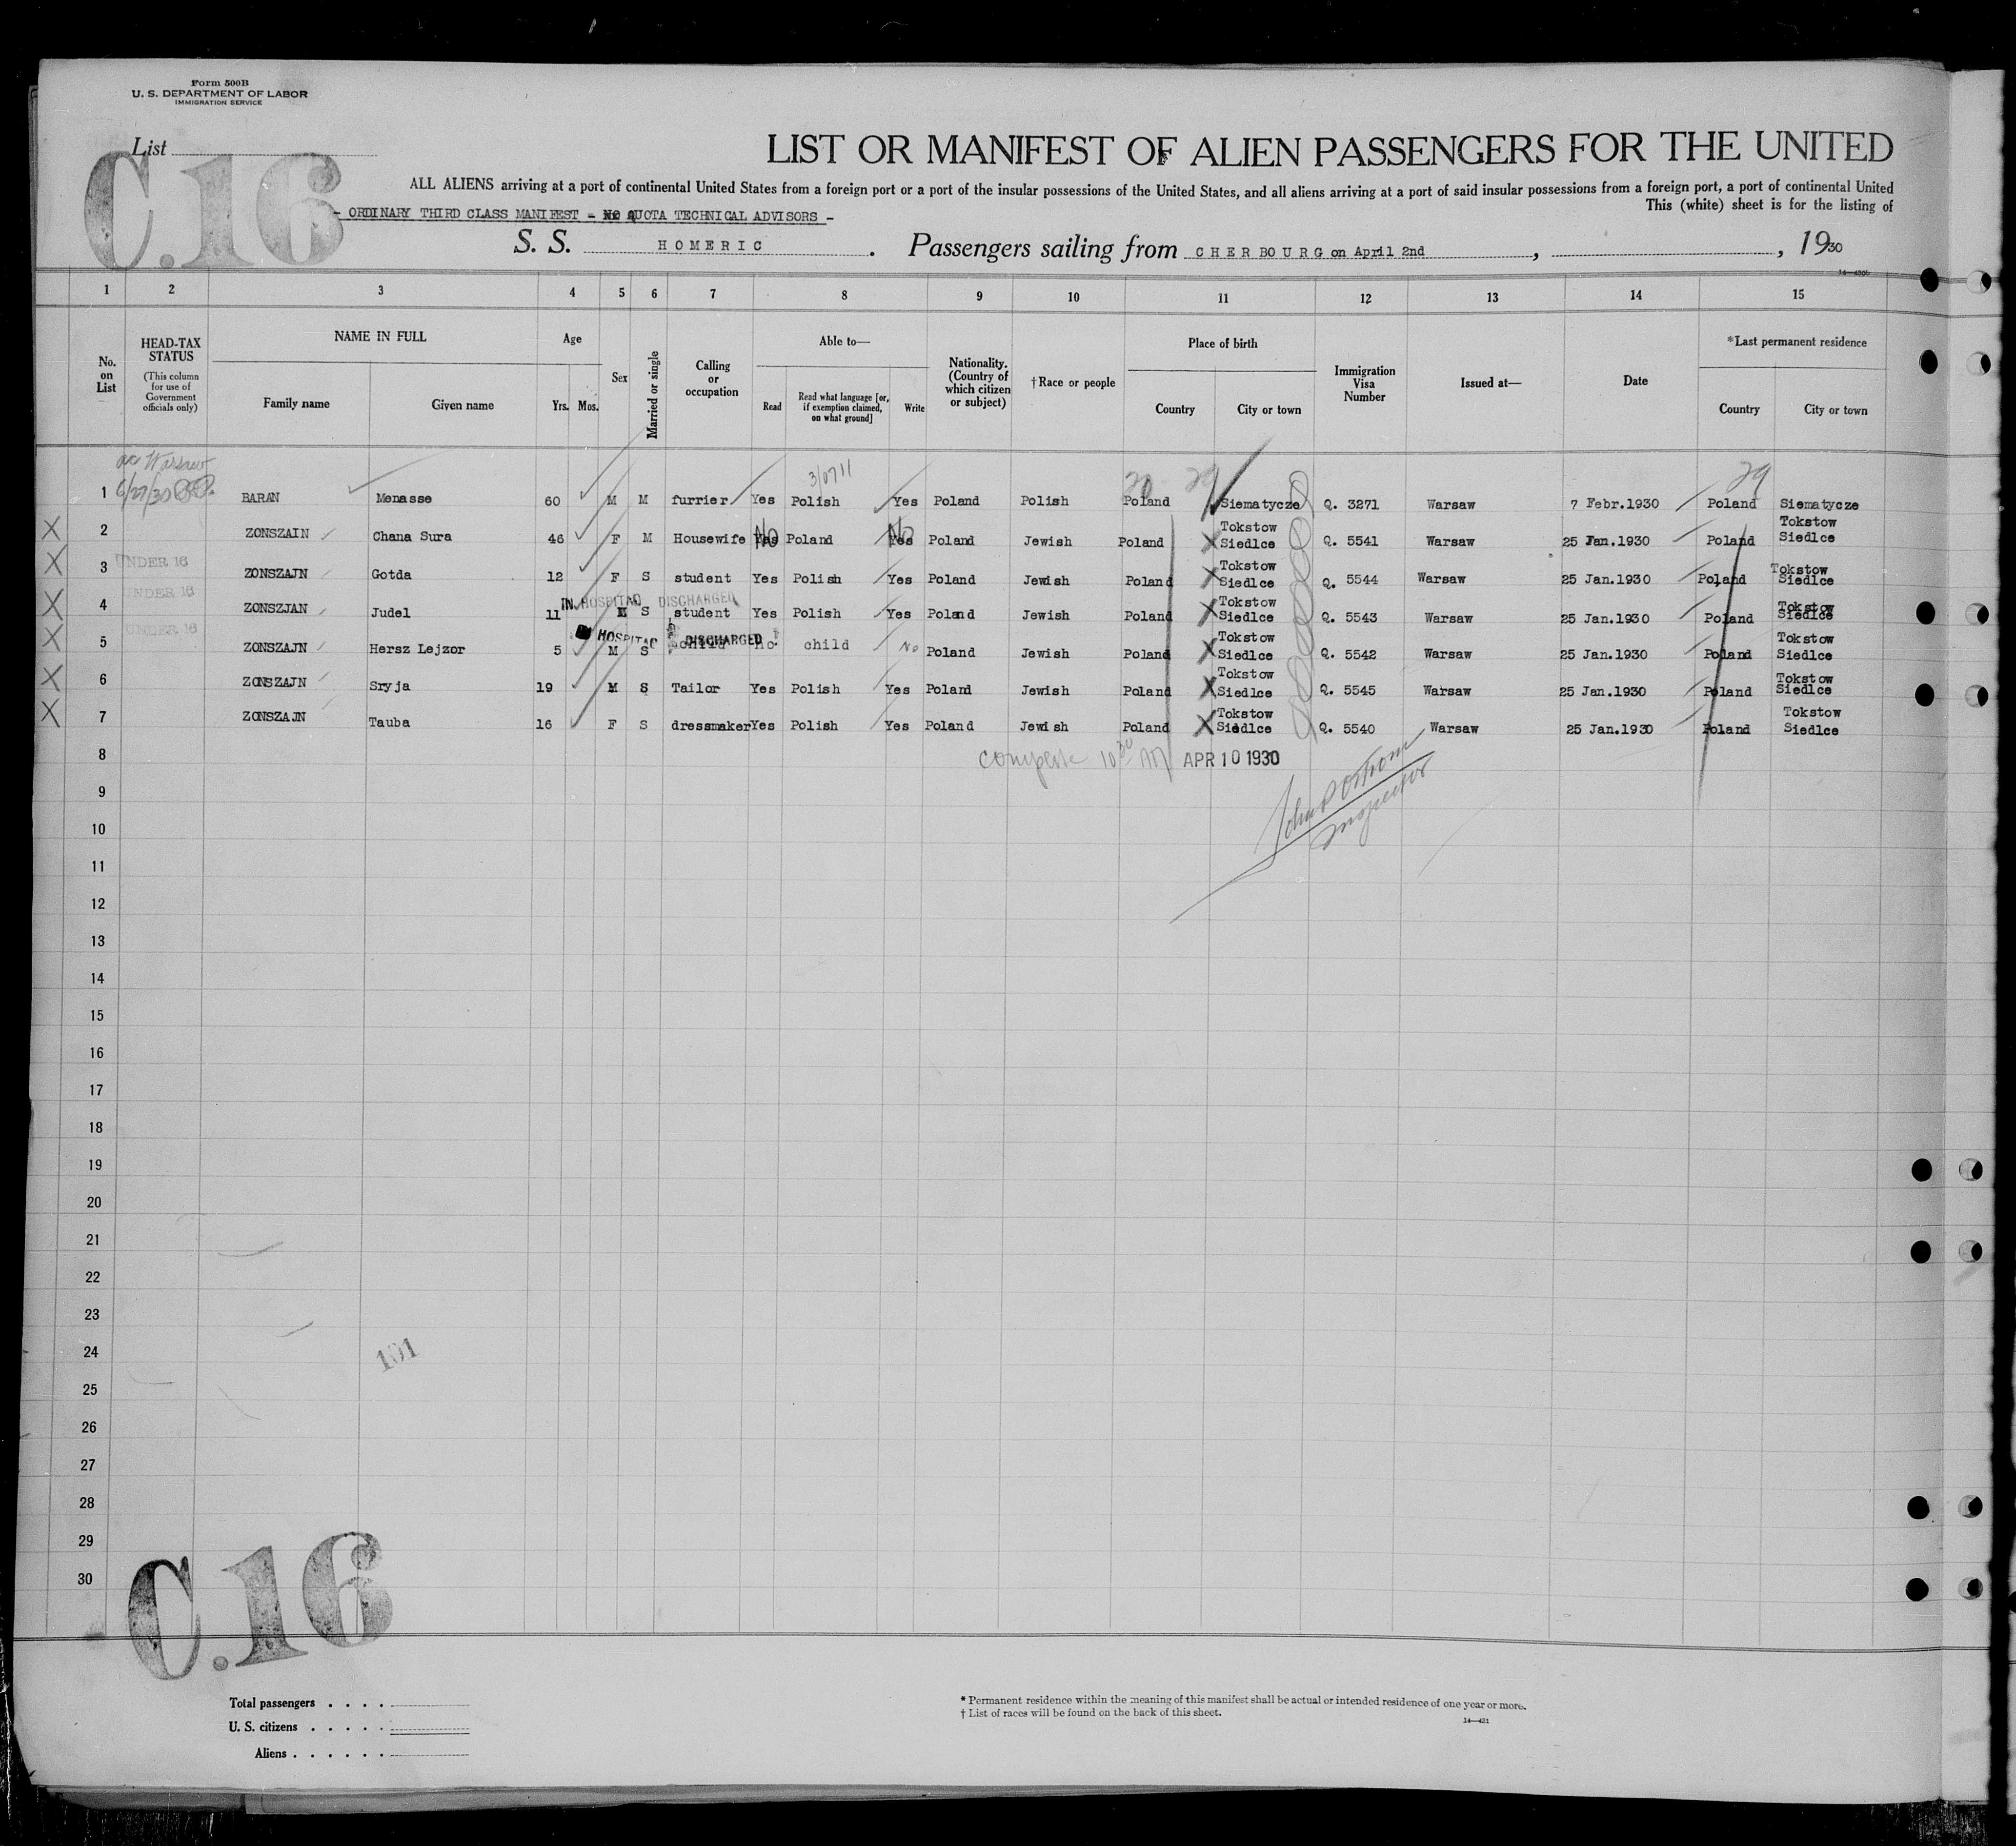 Form 500B
U. S. DEPARTMENT OF LABOR
IMMIGRATION SERVICE
List
C.16
LIST OR MANIFEST OF ALIEN PASSENGERS FOR THE UNITED
ALL ALIENS arriving at a port of continental United States from a foreign port or a port of the insular possessions of the United States, and all aliens arriving at a port of said insular possessions from a foreign port, a port of continental United
This (white) sheet is for the listing of
- ORDINARY THIRD CLASS MANIFEST - NO QUOTA TECHNICAL ADVISORS -
S. S. HOMERIC. Passengers sailing from CHERBOURG on April 2nd, , 1930
1 2 3 4 5 6 7 8 9 10 11 12 13 14 15
No. on List
HEAD-TAX STATUS
(This column for use of Government officials only)
NAME IN FULL
Family name Given name
Age
Yrs. Mos.
Sex
Married or single
Calling or occupation
Able to—
Read
Read what language [or, if exemption claimed, on what ground]
Write
Nationality. (Country of which citizen or subject)
†Race or people
Place of birth
Country City or town
Immigration Visa Number
Issued at—
Date
*Last permanent residence
Country City or town
Warsaw
6/27/30
3/0711
29
1 BARAN Menasse 60 M M furrier Yes Polish Yes Poland Polish Poland Siematycze Q. 3271 Warsaw 7 Febr.1930 Poland Siematycze
X 2 ZONSZAIN Chana Sura 46 F M Housewife Yes No Poland Yes No Poland Jewish Poland X Tokstow Siedlce Q. 5541 Warsaw 25 Jan.1930 Poland Tokstow Siedlce
X 3 UNDER 16 ZONSZAJN Gotda 12 F S student Yes Polish Yes Poland Jewish Poland X Tokstow Siedlce Q. 5544 Warsaw 25 Jan.1930 Poland Tokstow Siedlce
IN HOSPITAL DISCHARGED
X 4 UNDER 16 ZONSZJAN Judel 11 M S student Yes Polish Yes Poland Jewish Poland X Tokstow Siedlce Q. 5543 Warsaw 25 Jan.1930 Poland Tokstow Siedlce
HOSPITAL DISCHARGED
X 5 UNDER 16 ZONSZAJN Hersz Lejzor 5 M S child no child No Poland Jewish Poland X Tokstow Siedlce Q. 5542 Warsaw 25 Jan.1930 Poland Tokstow Siedlce
X 6 ZONSZAJN Sryja 19 M S Tailor Yes Polish Yes Poland Jewish Poland X Tokstow Siedlce Q. 5545 Warsaw 25 Jan.1930 Poland Tokstow Siedlce
X 7 ZONSZAJN Tauba 16 F S dressmaker Yes Polish Yes Poland Jewish Poland X Tokstow Siedlce Q. 5540 Warsaw 25 Jan.1930 Poland Tokstow Siedlce
8 complete 10 30 AM APR 10 1930
Inspector
9
10
11
12
13
14
15
16
17
18
19
20
21
22
23
24 101
25
26
27
28
29
30
C.16
Total passengers . . . .
U. S. citizens . . . . .
Aliens . . . . . .
* Permanent residence within the meaning of this manifest shall be actual or intended residence of one year or more.
† List of races will be found on the back of this sheet.
14—421